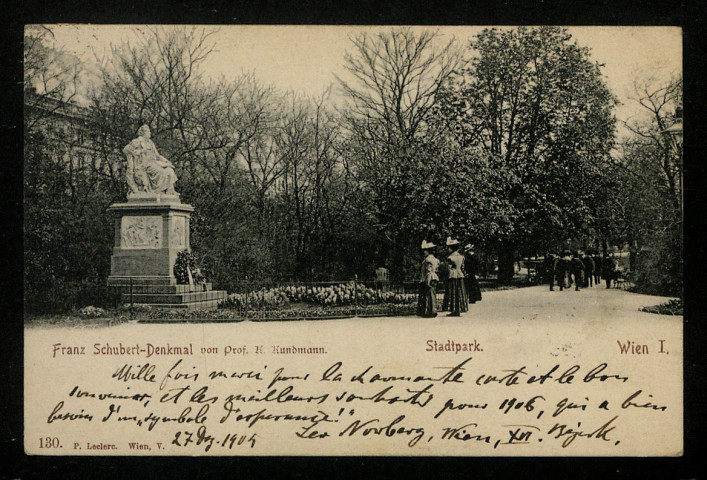 Franz Schubert-Denkmal von Prof. K. Kundmann.
Stadtpark.
Wien I.
Mille fois merci pour la charmante carte et le bon
souvenir, et les meilleurs souhaits pour 1906, qui a bien
besoin d'un „symbole d'esperance!"
27 Dez. 1905 Leo Norberg, Wien, XVI. Bezirk.
130. P. Leclerc. Wien, V.